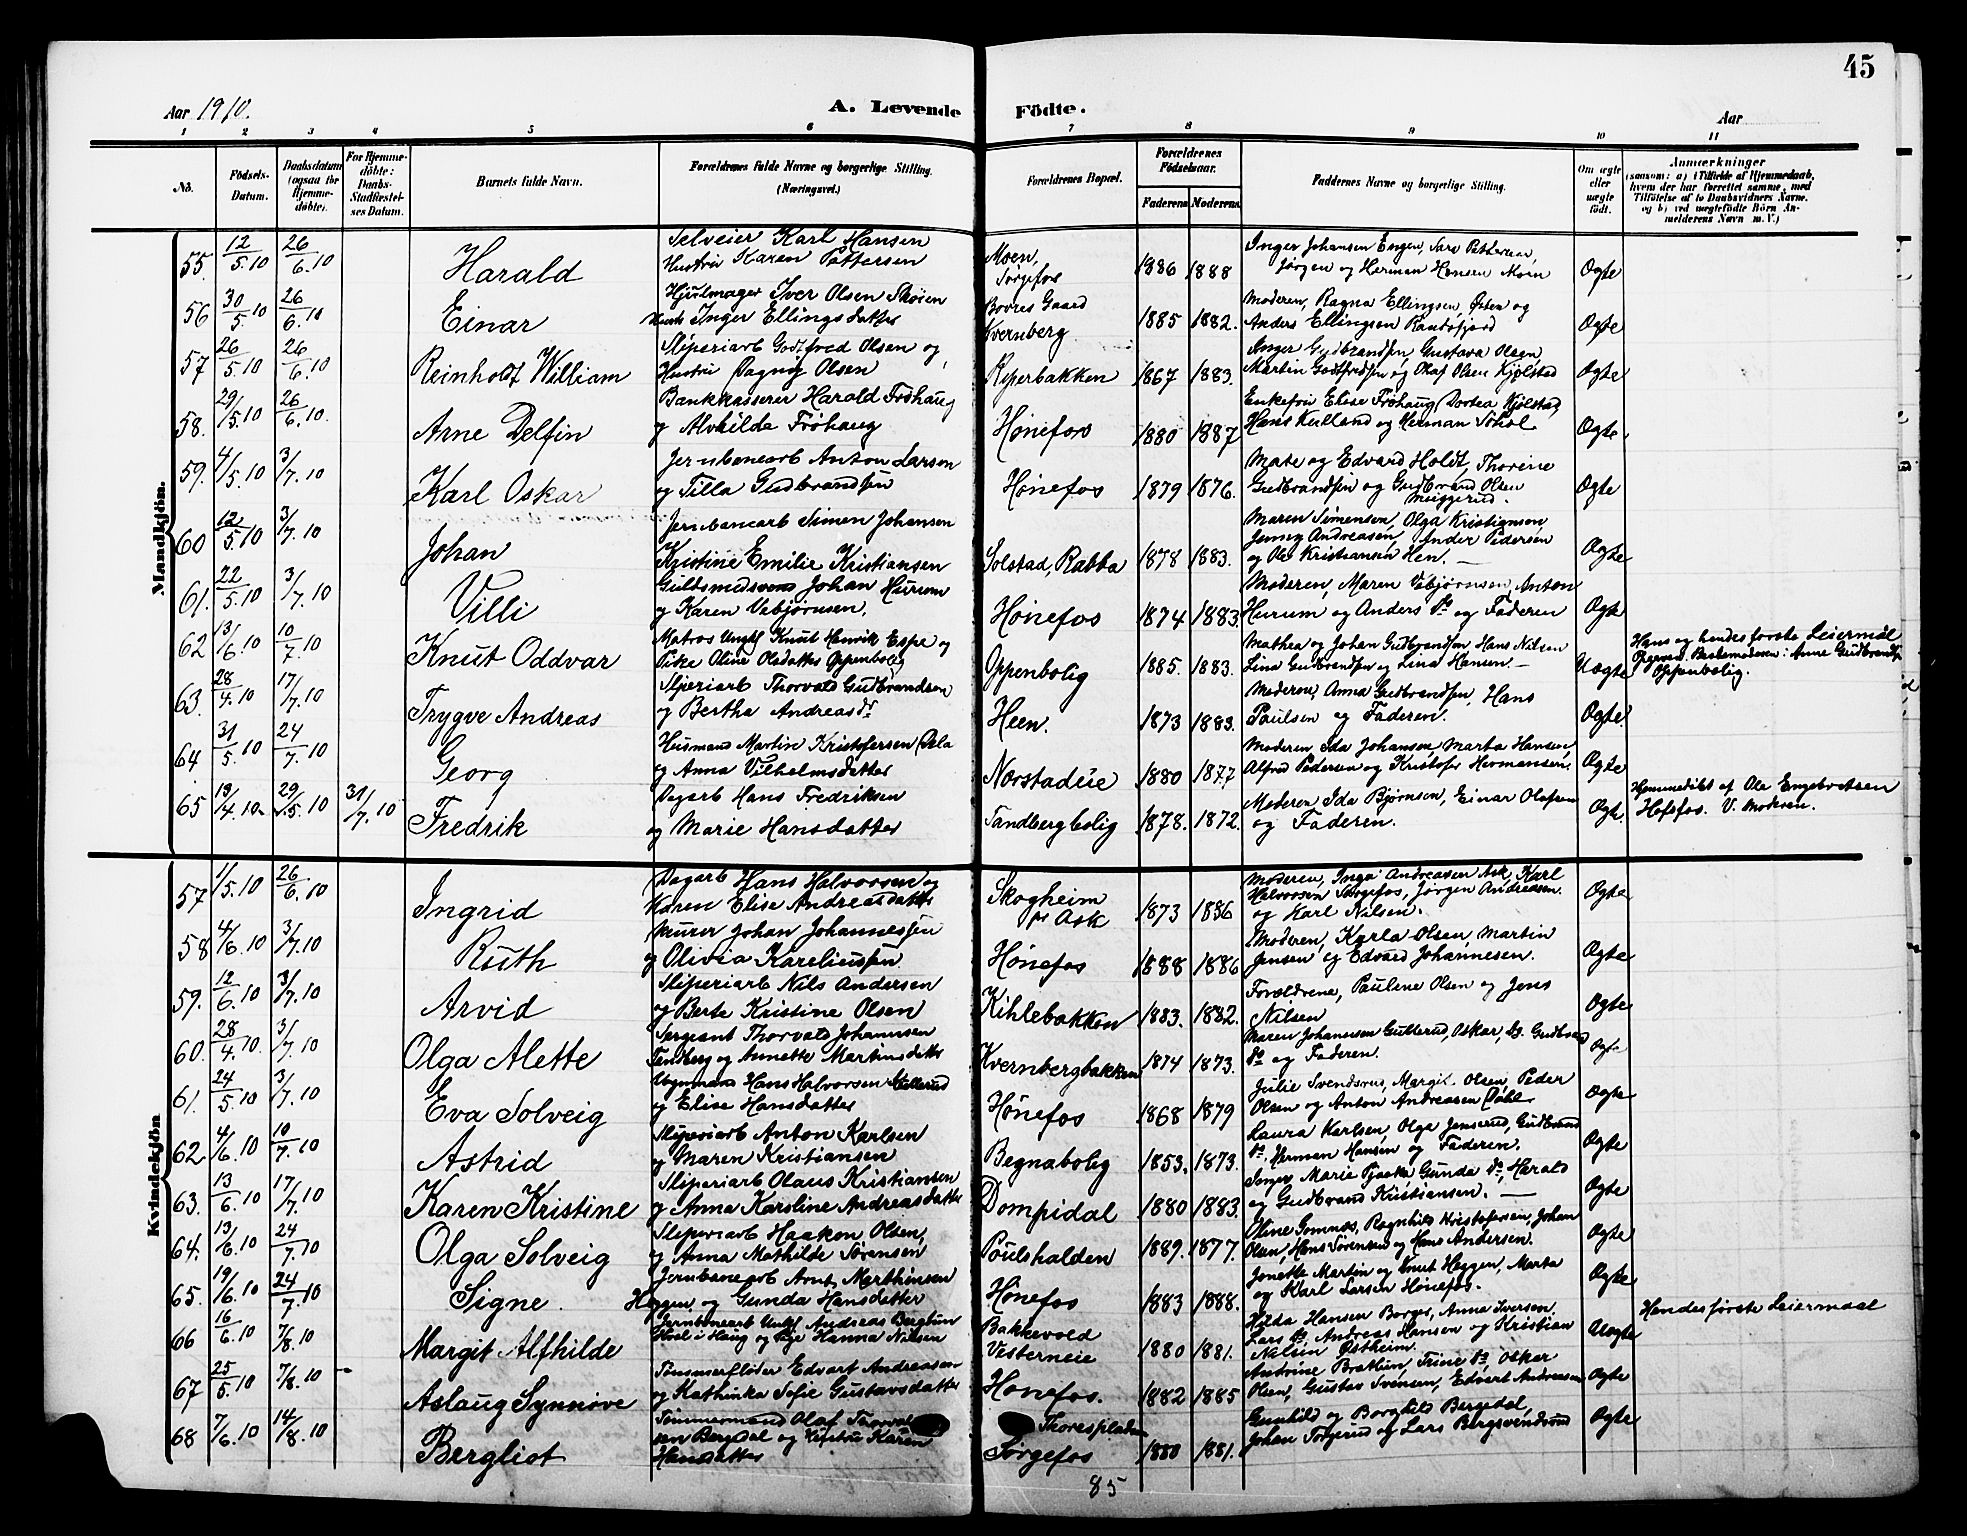 45
Aar 1910.
A. Levende Fødte.
Aar
1 2 3 4 5 6 7 8 9 10 11
No.
Fødsels-Datum.
Daabsdatum (ogsaa for Hjemmedøbte).
For Hjemmedøbte: Daabs-Stadfæstelses Datum.
Barnets fulde Navn.
Forældrenes fulde Navne og borgerlige Stilling. (Næringsvei.)
Forældrenes Bopæl.
Forældrenes Fødselsaar.
Faderens Moderens
Faddernes Navne og borgerlige Stilling.
Om ægte eller uægte født.
Anmærkninger
(saasom: a) i Tilfælde af Hjemmedaab, hvem der har forrettet samme, med Tilføielse af to Daabsvidners Navne, og b) ved uægtefødte Børn Anmelderens Navn m. V.)
Mandkjön.
55. 12/5.10 26/6.10 Harald Selveier Karl Hansen Hustru Karen Pettersen Moen, Sørgefos 1886 1888 Inger Johansen Engen, Sara Pettersen, Jørgen og Herman Hansen Moen Ægte
56 30/5.10 26/6.10 Einar Hjulmager Iver Olsen Skøien Hustr Inger Ellingsdatter Borres Gaard Kvernberg 1885 1882. Moderen, Ragna Ellingsen, Østen og Anders Ellingsen Randsfjord Ægte
57 26/5.10 26/6.10 Reinholt William Sliperiarb Godtfred Olsen og Hustru Dagny Olsen Roperbakken 1867 1883. Inger Gudbrandsen, Gustava Olsen, Martin Godtfredsen og Olaf Olsen Kjølstad Ægte
58. 29/5.10 26/6.10. Arne Delfin Bankkasserer Harald Frøhaug og Alvhilda Frøhaug Hønefos 1880 1887 Enkefru Elise Frøhaug, Dortea Kjølstad, Hans Kulland og Herman Sohol Ægte
59. 4/5.10 3/7.10 Karl Oskar Jernbanearb Anton Larsen og Tilla Gudbrandsen Hønefos 1879 1876. Mate og Edvard Holdt, Thorine Gudbrandsen og Gudbrand Olsen Muggerud. Ægte
60 12/5.10 3/7.10 Johan Jernbanearb Simen Johansen Kristine Emilie Kristiansen Solstad, Rabba 1878 1883. Maren Simensen, Olga Kristiansen, Jenny Andreasen, Ander Pedersen og Ole Kristiansen Hen. Ægte
61. 22/5.10 3/7.10 Villi Guldsmedsvend Johan Hurum og Karen Vebjørnsen. Hønefos 1874 1883 Moderen, Maren Vebjørnsen, Anton Hurum og Anders Do og Faderen Ægte
62 13/6.10 10/7.10 Knut Oddvar Matros Ungkl Knut Henrik Espe og Pike Oline Olsdatter Oppenbolig Oppenbolig 1885. 1883. Mathea og Johan Gudbrandsen Hans Nilsen Lina Gudbrandsen og Lina Hansen. Uægte Hans og hendes første Leiermål Bestemoderen: Anne Gudbrandsen Oppenbolig.
63. 28/4.10 17/7.10 Trygve Andreas Sliperiarb Thorvald Gudbrandsen og Bertha Andreasdr Heen. 1873 1883. Moderen, Anna Gudbrandsen, Hans Paulsen og Faderen. Ægte
64 31/5.10 24/7.10 Georg Husmand Martin Kristofersen og Anna Vilhelmsdatter Norstadeie 1880 1877 Moderen, Ida Johansen, Marta Hansen, Alfred Pedersen og Kristofer Hermansen. Ægte
65 13/4.10 29/5.10 31/7.10 Fredrik Dagarb Hans Fredriksen og Marie Hansdatter Tandbergbolig 1878. 1872. Moderen Ida Bjørnsen, Einar Olafsen og Faderen. Ægte. Hjemmedøbt af Ole Engebretsen Hofsfos. V. Moksen.
Kvindekjön
57 1/5.10 26/6.10 Ingrid Dagarb Hans Halvorsen og Karen Elise Andreasdatter Skogheim pr Ask 1873 1886 Moderen, Inga Andreassen Ask, Karl Halvorsen Sørgefos, Jørgen Andreassen og Karl Nilsen. Ægte
58 4/6.10 3/7.10 Ruth Murer Johan Johannessen og Olivia Kareliussen Hønefos 1888 1886 Moderen, Karla Olsen, Martin Jensen og Edvard Johannesen. Ægte
59. 12/6.10 3/7.10 Arvid Sliperiarb Nils Andersen og Berte Kristine Olsen Kihlebakken 1883. 1882. Forældrene, Pauline Olsen og Jens Nilsen Ægte
60. 28/4.10. 3/7.10 Olga Alette Sergeant Thorvald Johannsen Tandberg og Annette Martinsdatter Kvernbergbakken 1874 1873. Maren Johannesen Gullerud, Oskar Do Gudbrand Do og Faderen. Ægte
61. 24/5.10 3/7.10 Eva Solveig Vognmand Hans Halvorsen og Elise Hansdatter Hønefos 1868 1879 Julie Svendsrud, Margit Olsen, Peder Olsen og Anton Andreasen Dåhl Ægte
62. 4/6.10 10/7.10 Astrid Sliperiarb Anton Karlsen og Maren Kristiansen Begnabolig 1853. 1873. Laura Karlsen, Olga Jenserud, Gudbrand Do. Herman Hansen og Faderen. Ægte
63. 13/6.10 17/7.10 Karen Kristine Sliperiarb Olaus Kristiansen og Anna Karoline Andreasdatter Dompidal 1880 1883. Inger Marie Pjaaka, Gunda Do, Harald og Gudbrand Kristiansen. Ægte
64. 13/6.10 24/7.10 Olga Solveig Sliperiarb Haakon Olsen, og Anna Mathilde Sørensen Poulshalden 1889. 1877. Oline Gomnæs, Ragnhild Kristofersen, Johan Olsen, Hans Sørensen og Hans Andersen. Ægte
65. 19/6.10 24/7.10 Signe. Jernbanearb Arnt Marthinsen Heggen, og Gunda Hansdatter Hønefos 1883 1888. Jonette Martin og Knut Heggen, Marta og Karl Larsen Hønefos. Ægte
66 16/6.10 7/8.10 Margit Alfhilde Jernbanearb Ungkl Andreas Berglun i Haug og Pige Hanna Nilsen Bakkevold Vesterneie 1880 1881. Hilda Hansen Borger, Anna Iversen, Lars Do, Andreas Hansen og Kristian Nilsen Østheim. Uægte Hendes første Leiermaal
67 25/5.10 7/8.10 Aslaug Synnøve Tømmerfløder Edvart Andreassen og Kathinka Sofie Gustavsdatter Hønefos. 1882 1885 Andrine Bratlun, Trine Do, Oskar Olsen, Gustav Svensen, Edvart Andreassen Ægte
68 7/6.10 14/8.10 Bergliot Tømmermand Olaf Thorvaldsen Bergdal og Hustru Karen Hansdatter Thorespladsen Sørgefos 1880 1881. Gunhild og Borghild Bergdal, Johan Torgerud og Lars Bergsvendsrud Ægte
85